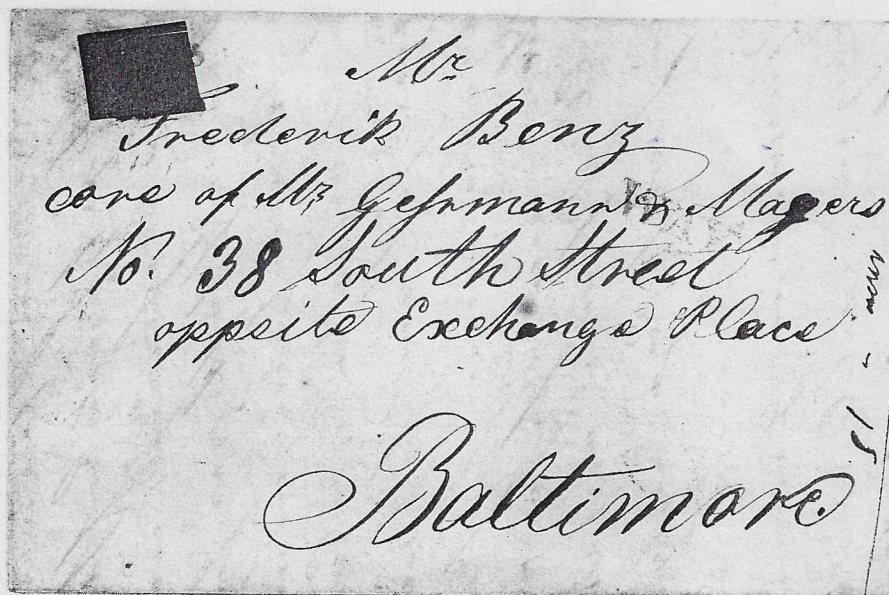 Mr
Frederik Benz
care of Mr Gehrmann & Magers
No. 38 South Street
oppsite Exchange Place
Baltimore.
15